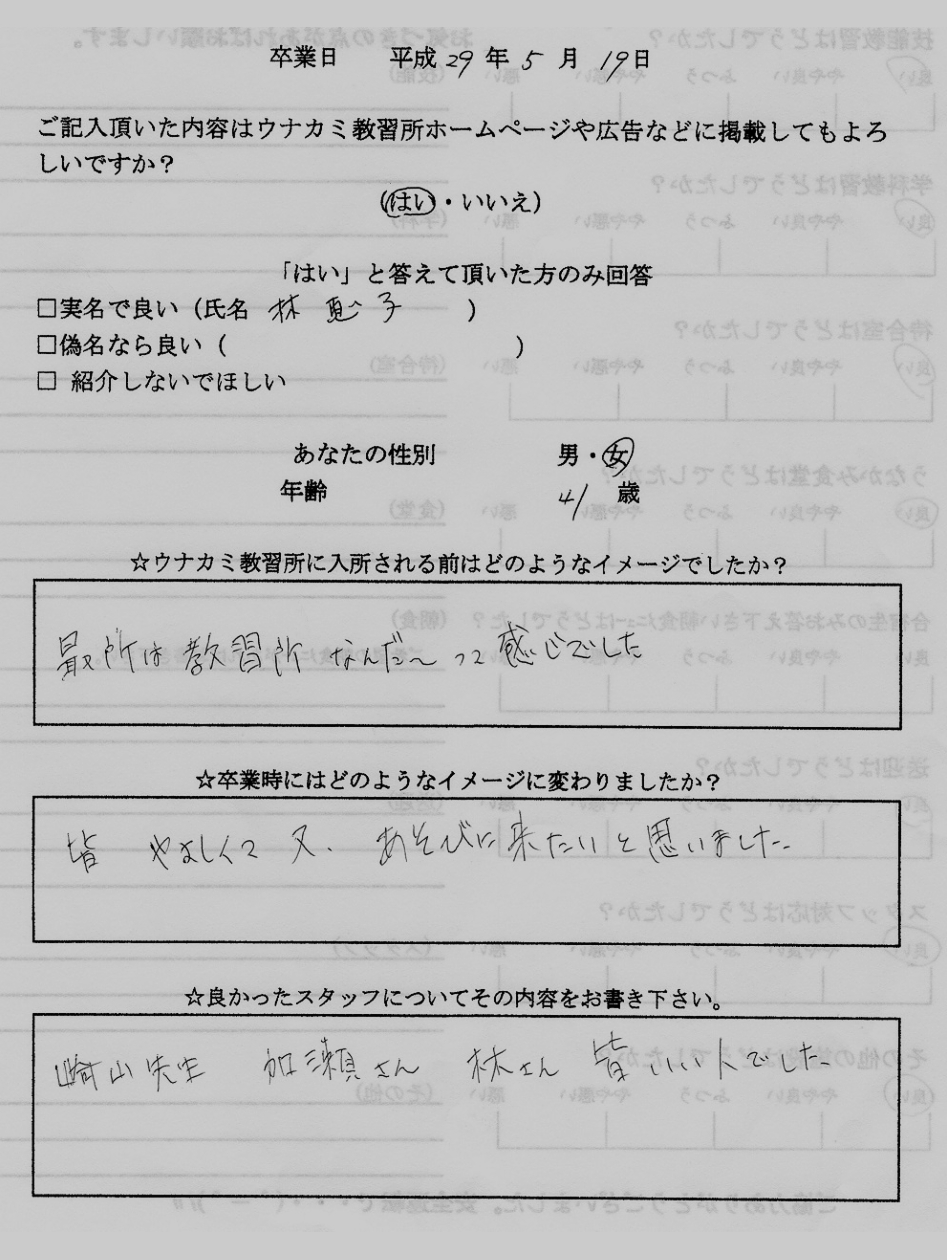 卒業日 平成29年5月19日
ご記入頂いた内容はウナカミ教習所ホームページや広告などに掲載してもよろ
しいですか?
(はい・いいえ)
「はい」と答えて頂いた方のみ回答
□実名で良い (氏名 林 恵子 )
□偽名なら良い ( )
□ 紹介しないでほしい
あなたの性別 男・女
年齢 41 歳
☆ウナカミ教習所に入所される前はどのようなイメージでしたか?
最所は教習所なんだ~って感じでした
☆卒業時にはどのようなイメージに変わりましたか?
皆 やさしくて 又、あそびに来たいと思いました。
☆良かったスタッフについてその内容をお書き下さい。
崎山先生 加瀬さん 林さん 皆いい人でした